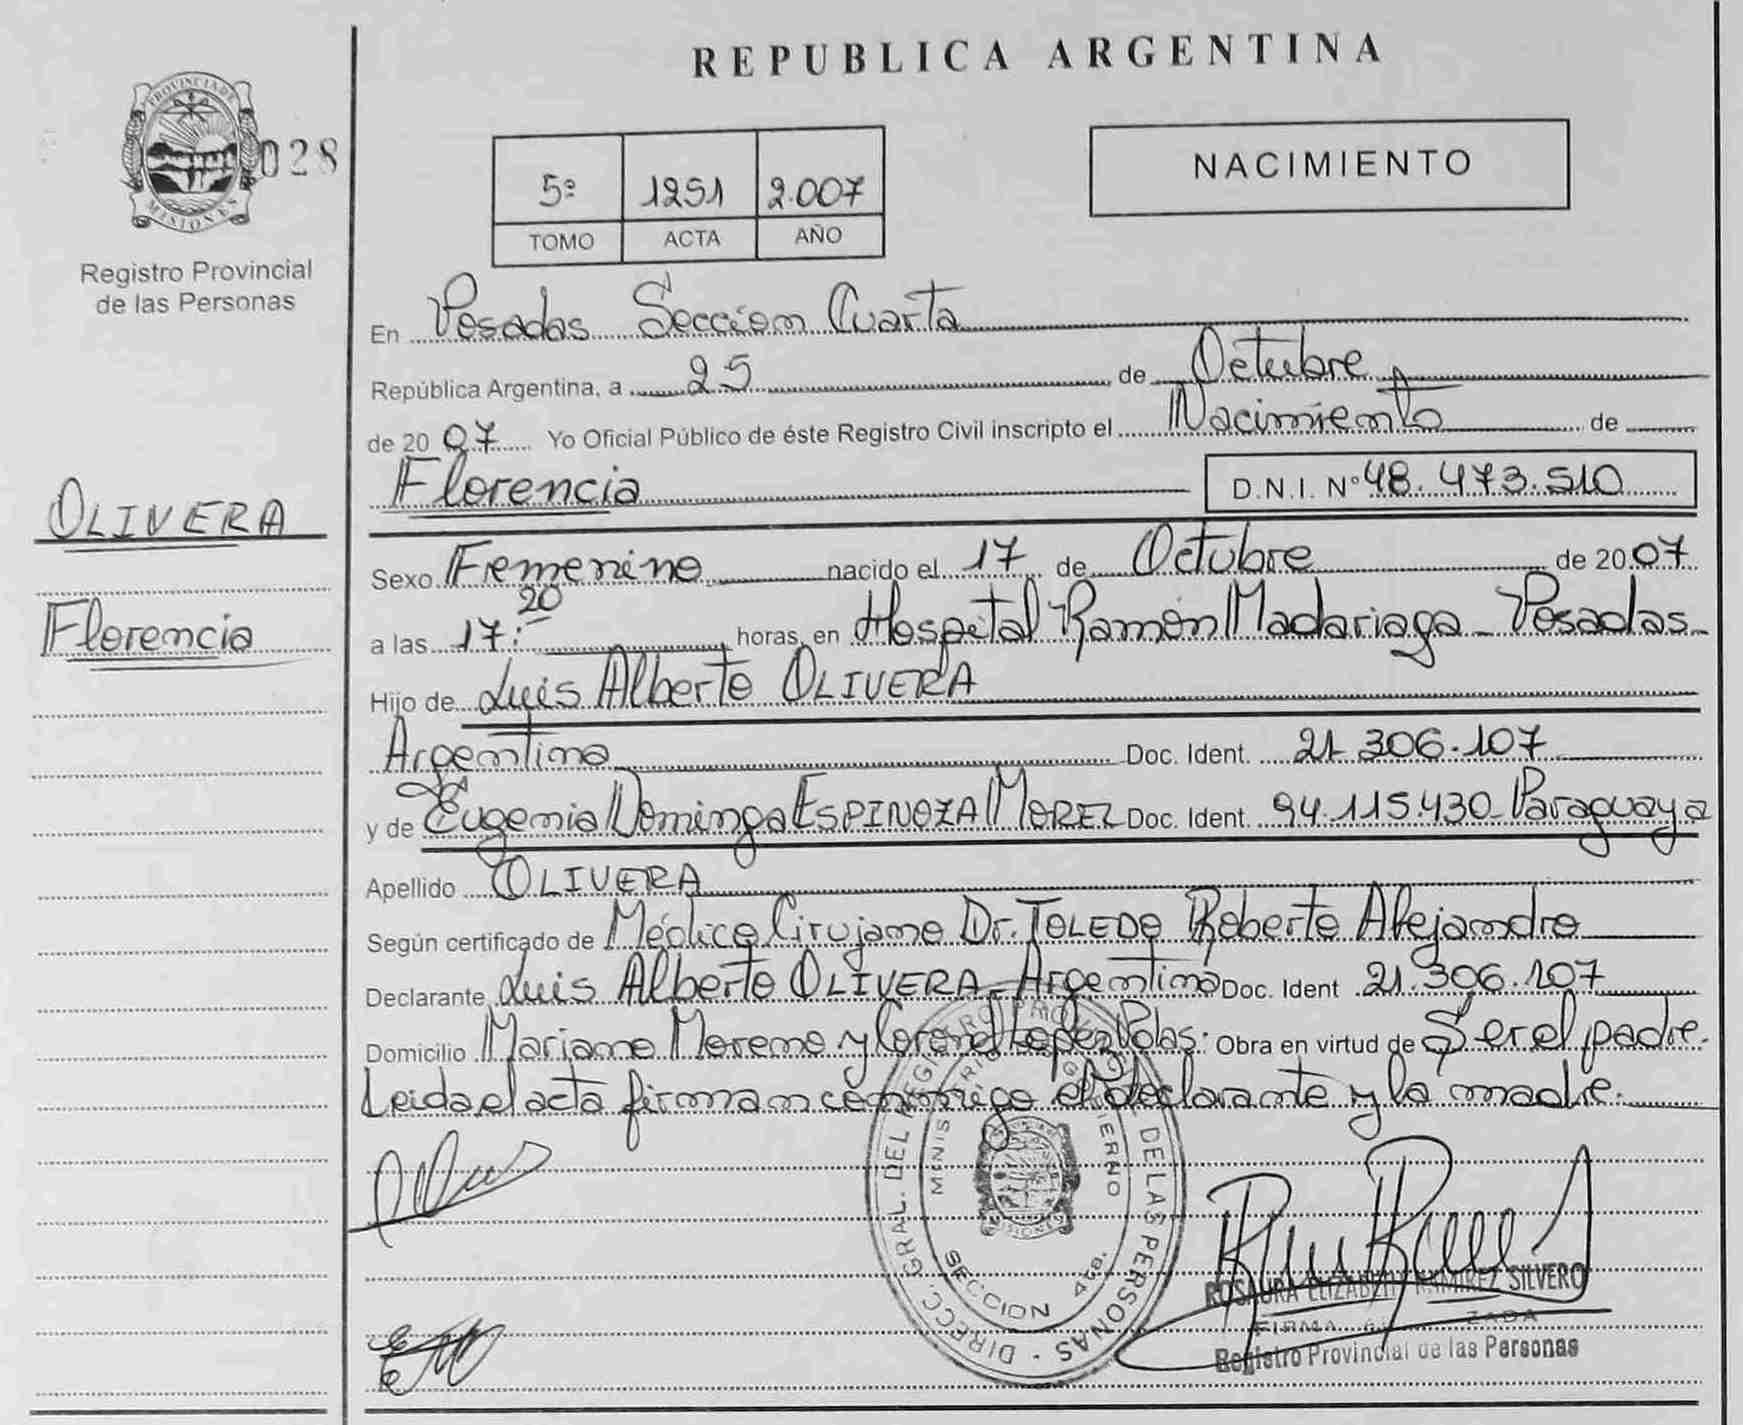 REPUBLICA ARGENTINA
PROVINCIA DE
MISIONES
028
Registro Provincial
de las Personas
5º 1251 2.007
TOMO ACTA AÑO
NACIMIENTO
En Posadas Sección Cuarta
República Argentina, a 25 de Octubre
de 2007 Yo Oficial Público de éste Registro Civil inscripto el Nacimiento de
Florencia D.N.I. Nº 48.473.510
OLIVERA
Florencia
Sexo Femenino nacido el 17 de Octubre de 2007
a las 17:20 horas, en Hospital Ramón Madariaga - Posadas
Hijo de Luis Alberto OLIVERA
Argentino Doc. Ident. 21.306.107
y de Eugenia Dominga ESPINOZA MOREZ Doc. Ident. 94.115.430 - Paraguaya
Apellido OLIVERA
Según certificado de Médico Cirujano Dr. TOLEDO Roberto Alejandro
Declarante Luis Alberto OLIVERA - Argentino Doc. Ident 21.306.107
Domicilio Mariano Moreno y Coronel Lopez Pdas. Obra en virtud de Ser el padre.
Leida el acta firman conmigo el declarante y la madre.
DIRECC. GRAL. DEL REGISTRO PROV. DE LAS PERSONAS
SECCION 4ta.
ROSAURA ELIZABETH RAMIREZ SILVERO
FIRMA
Registro Provincial de las Personas